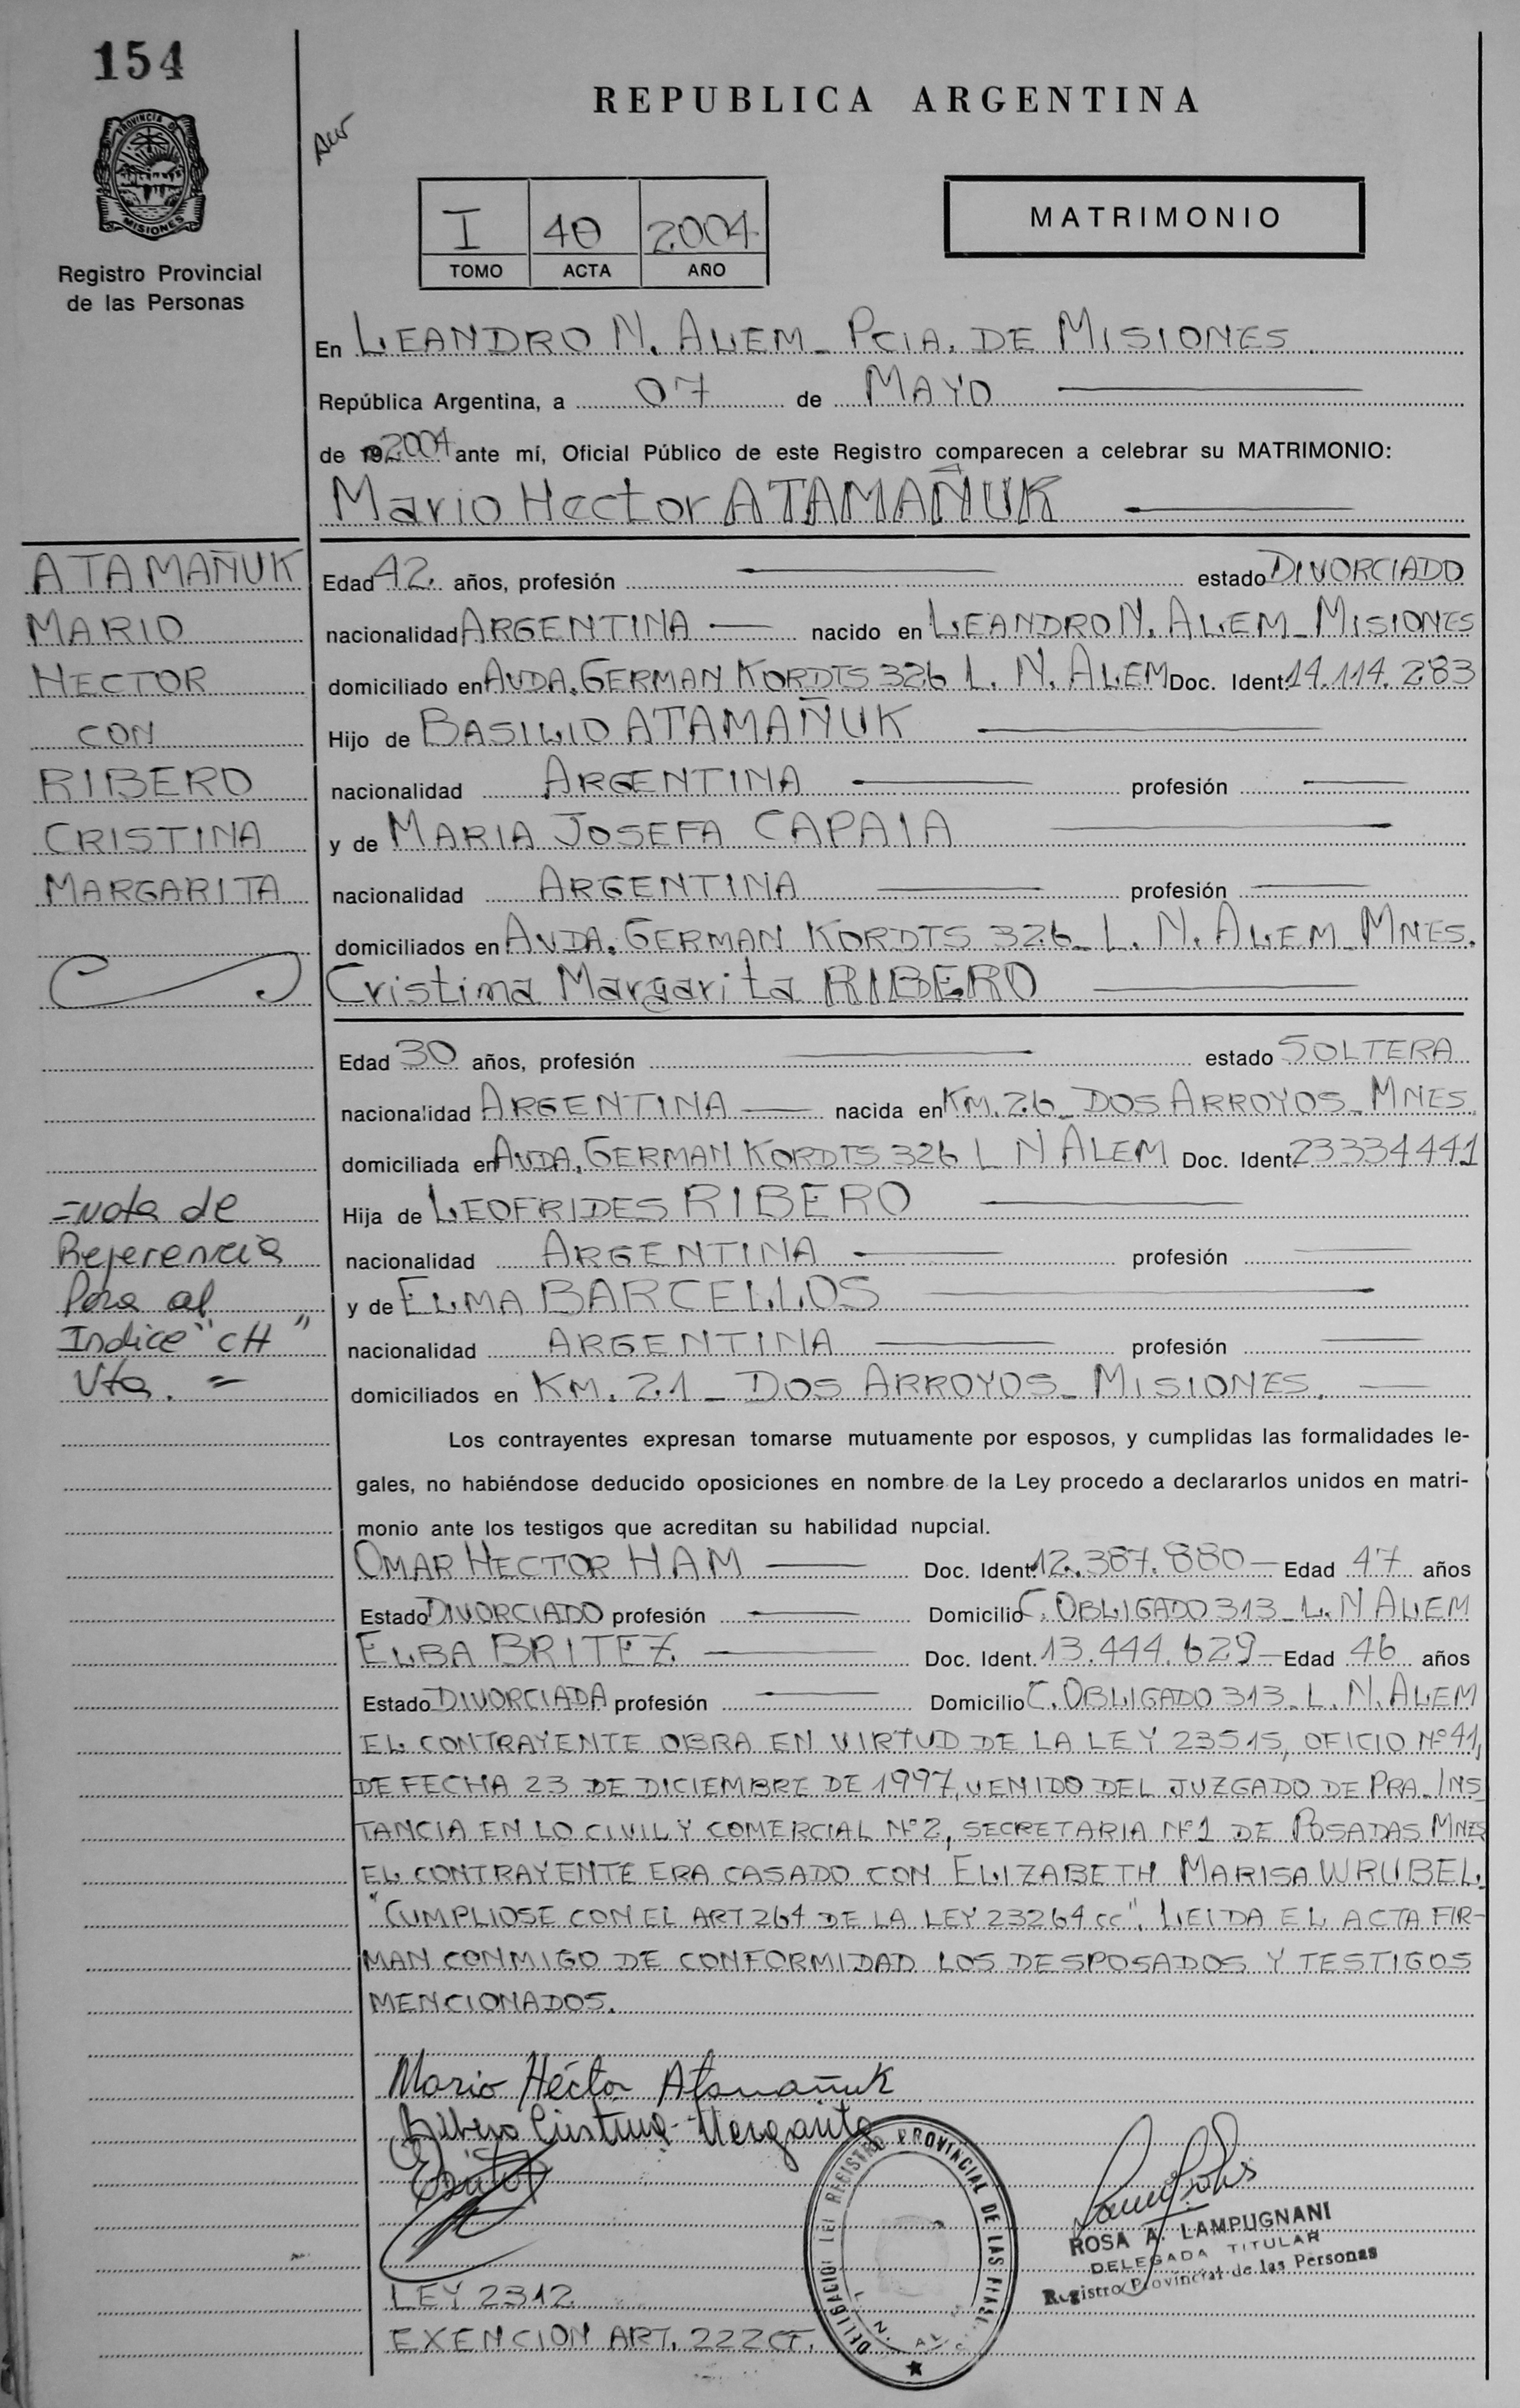 154
PROVINCIA DE
MISIONES
Registro Provincial
de las Personas
REPUBLICA ARGENTINA
I 40 2004
TOMO ACTA AÑO
MATRIMONIO
En LEANDRO N. ALEM - PCIA. DE MISIONES
República Argentina, a 07 de MAYO
de 19 2004 ante mí, Oficial Público de este Registro comparecen a celebrar su MATRIMONIO:
Mario Hector ATAMAÑUK
ATAMAÑUK
MARIO
HECTOR
CON
RIBERO
CRISTINA
MARGARITA
Edad 42. años, profesión estado DIVORCIADO
nacionalidad ARGENTINA nacido en LEANDRO N. ALEM - MISIONES
domiciliado en AVDA. GERMAN KORDTS 326 L. N. ALEM Doc. Ident. 14.114.283
Hijo de BASILIO ATAMAÑUK
nacionalidad ARGENTINA profesión
y de MARIA JOSEFA CAPAIA
nacionalidad ARGENTINA profesión
domiciliados en AVDA. GERMAN KORDTS 326 - L. N. ALEM - MNES.
Cristina Margarita RIBERO
Edad 30 años, profesión estado SOLTERA
nacionalidad ARGENTINA nacida en KM. 26 - DOS ARROYOS - MNES
domiciliada en AVDA. GERMAN KORDTS 326 L N ALEM Doc. Ident. 23334441
Hija de LEOFRIDES RIBERO
nacionalidad ARGENTINA profesión
y de ELMA BARCELLOS
nacionalidad ARGENTINA profesión
domiciliados en KM. 21 - DOS ARROYOS - MISIONES.
=Nota de
Referencia
Para al
Indice "CH"
Vta. =
Los contrayentes expresan tomarse mutuamente por esposos, y cumplidas las formalidades le-
gales, no habiéndose deducido oposiciones en nombre de la Ley procedo a declararlos unidos en matri-
monio ante los testigos que acreditan su habilidad nupcial.
OMAR HECTOR HAM Doc. Ident. 12.387.880 - Edad 47 años
Estado DIVORCIADO profesión Domicilio C. OBLIGADO 313 - L. N ALEM
ELBA BRITEZ Doc. Ident. 13.444.629 - Edad 46 años
Estado DIVORCIADA profesión Domicilio C. OBLIGADO 313 - L. N. ALEM
EL CONTRAYENTE OBRA EN VIRTUD DE LA LEY 23515, OFICIO Nº 41,
DE FECHA 23 DE DICIEMBRE DE 1997, VENIDO DEL JUZGADO DE PRA. INS
TANCIA EN LO CIVIL Y COMERCIAL Nº 2, SECRETARIA Nº 1 DE POSADAS MNES
EL CONTRAYENTE ERA CASADO CON ELIZABETH MARISA WRUBEL.
"CUMPLIOSE CON EL ART 264 DE LA LEY 23264 CC". LEIDA EL ACTA FIR-
MAN CONMIGO DE CONFORMIDAD LOS DESPOSADOS Y TESTIGOS
MENCIONADOS.
Mario Héctor Atamañuk
Ribero Cristina Margarita
REGISTRO PROVINCIAL DE LAS
ROSA A. LAMPUGNANI
DELEGADA TITULAR
Registro Provincial de las Personas
LEY 2312
EXENCION ART. 222 CF.